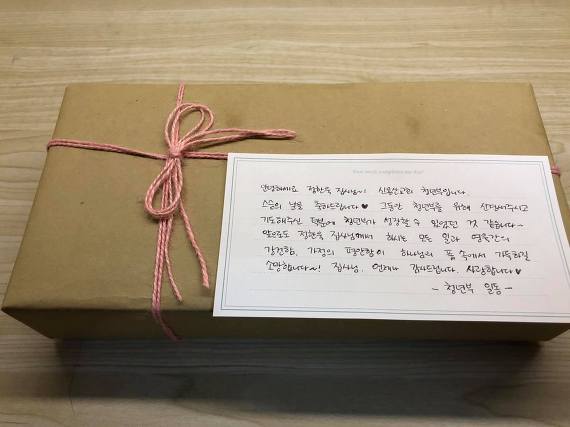 안녕하세요 정한욱 집사님~! 신용산교회 청년부입니다.
스승의 날을 축하드립니다♥ 그동안 청년부를 위해 신경써주시고
기도해주신 덕분에 청년부가 성장할 수 있었던 것 같습니다~
앞으로도 정한욱 집사님께서 하시는 모든 일과 영육간의
강건함, 가정의 평안함이 하나님의 품 속에서 가득하길
소망합니다~! 집사님, 언제나 감사드립니다. 사랑합니다♥
- 청년부 일동 -